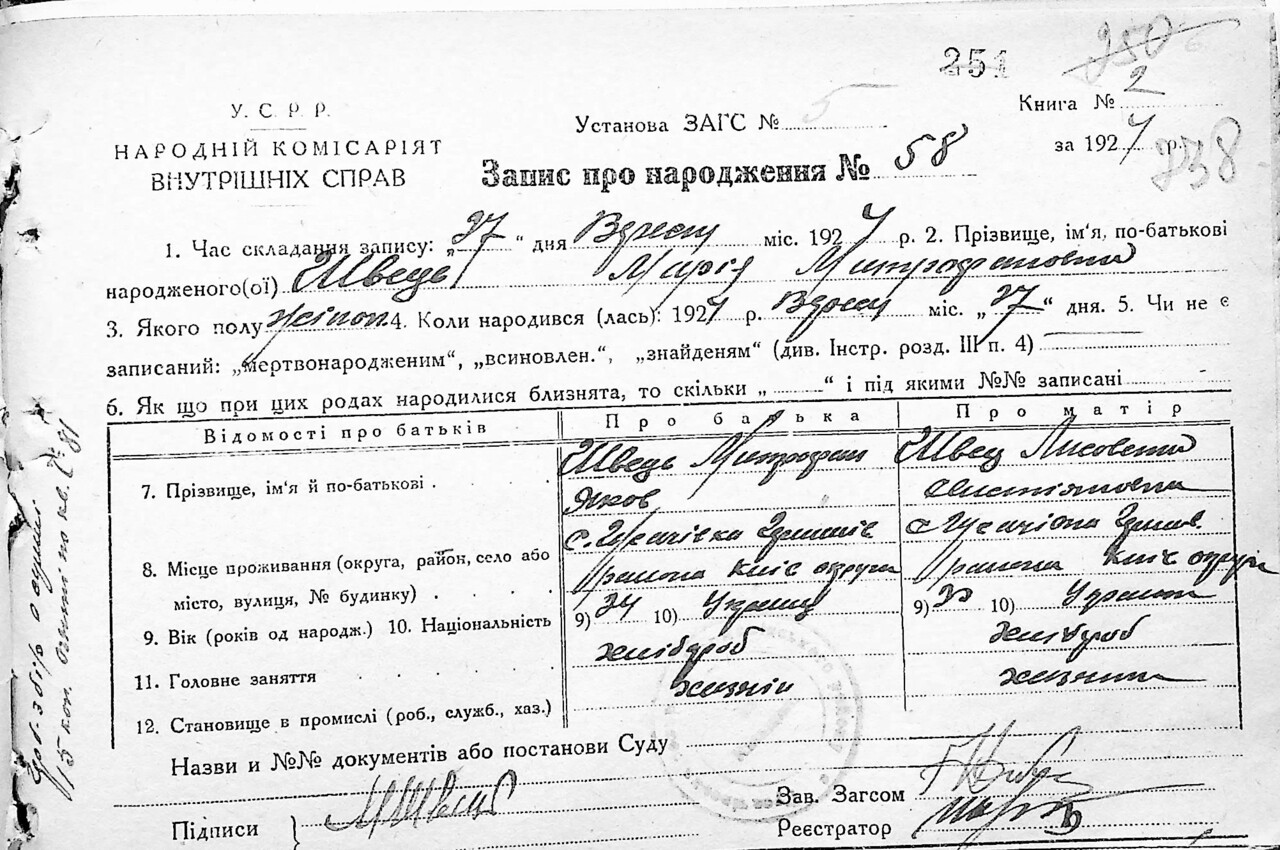 251 250
У. С. Р. Р.
НАРОДНІЙ КОМІСАРІЯТ
ВНУТРІШНІХ СПРАВ
Установа ЗАГС № 5
Запис про народження № 58
Книга № 2
за 1927 р. 238
1. Час складання запису: „27“ дня Вересн міс. 1927 р. 2. Прізвище, ім‘я, по-батькові
народженого(ої) Швець Марія Митрофановна
3. Якого полу жіноч. 4. Коли народився (лась): 1927 р. Вересн міс. „27“ дня. 5. Чи не є
записаний: „мертвонародженим“, „всиновлен.“, „знайденям“ (див. Інстр. розд. III п. 4)
6. Як що при цих родах народилися близнята, то скільки „ “ і під якими №№ записані
Відомості про батьків Про батька Про матір
7. Прізвище, ім‘я й по-батькові . Швець Митрофан Швец Лисовета
Яков
8. Місце проживання (округа, район, село або с. Гусачівка с. Гусачівка
місто, вулиця, № будинку) . района Київ округа района Київ округи
9. Вік (років од народж.) 10. Національність 9) 34 10) Украінц 9) 10) Украінка
11. Головне заняття хлібороб хлібороб
12. Становище в промислі (роб., служб., хаз.) хазяін
Назви и №№ документів або постанови Суду
Підписи } МШвець
Зав. Загсом
Реєстратор
15 коп.